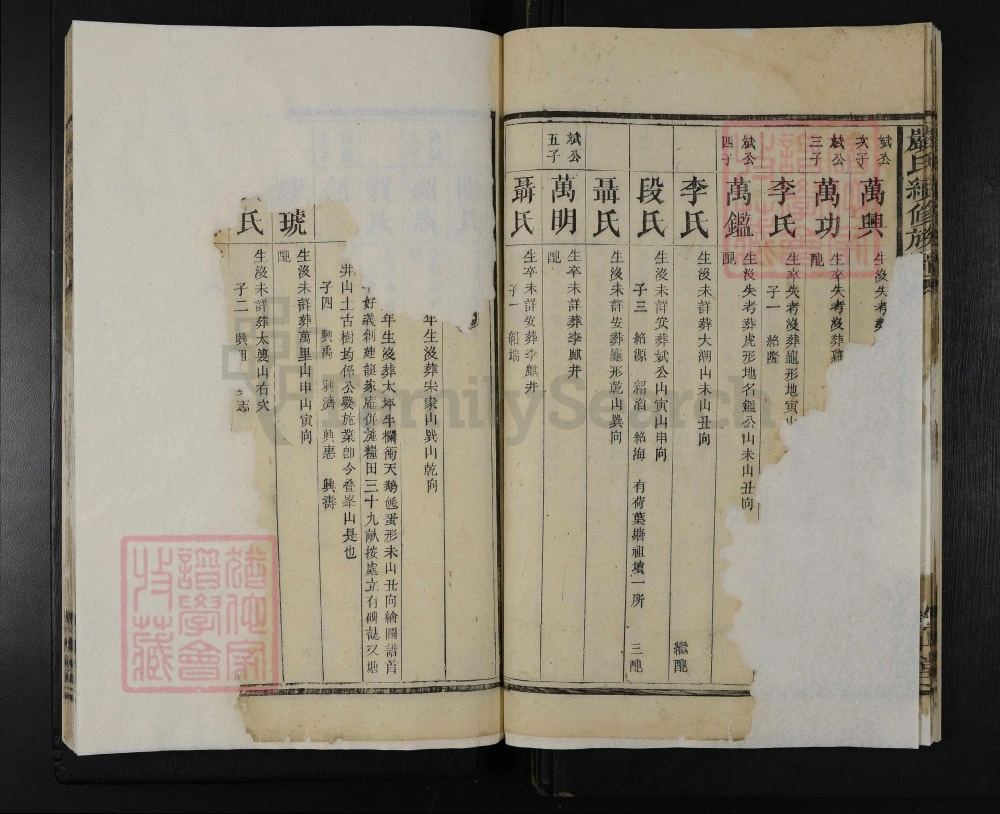 嚴氏續修族譜
斌公次子 萬興 生沒失考葬
配
斌公三子 萬功 生卒失考葬
李氏 生卒失考沒葬龜形地寅山
子一 紹隆
斌公四子 萬鑑 生沒失考葬虎形地名鑑公山未山丑向
配
李氏 生沒未詳葬大湖山未山丑向 繼配
段氏 生沒未詳安葬斌公山寅山申向
子三 紹源 紹滔 紹海 有荷葉塘祖墳一所 三配
聶氏 生沒未詳安葬龜形乾山巽向
斌公五子 萬明 生卒未詳葬李麒井
配
聶氏 生卒未詳安葬李麒井
子一 紹瑞
年生沒葬宋家山巽山乾向
年生沒葬太坪牛欄衝天鵝蛋形未山丑向繪圖譜首
好義創建龍家庵併施糧田三十九畝按處立有碑誌又塘
井山土古樹均係公娶施業即今叠峯山是也
子四 興禹 興濟 興惠 興壽
琥 生沒未詳葬萬里山申山寅向
配
氏 生沒未詳葬太婆山右穴
子二 興祖
猶他家譜學會收藏
FamilySearch